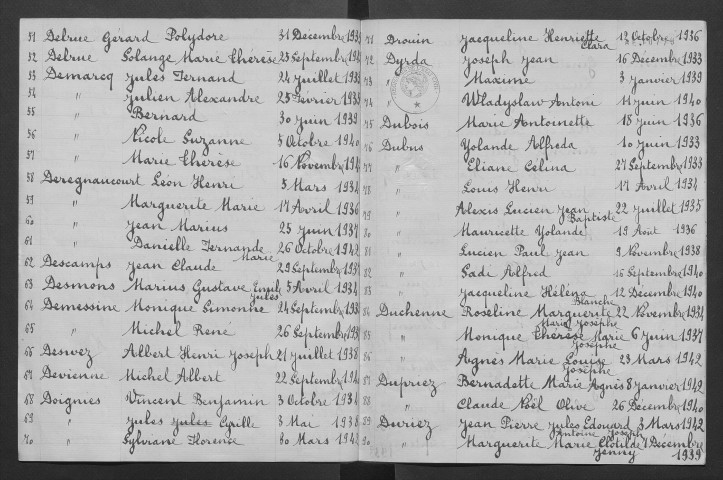 51 Delrue Gérard Polydore 31 Décembre
52 Delrue Solange Marie Thérèse 25 Septembre
53 Demarcq Jules Fernand 24 Juillet 1932
54 " Julien Alexandre 25 Février
55 " Bernard 30 Juin 1939
56 " Nicole Suzanne 5 Octobre 1940
57 " Marie Thérèse 16 Novembre
58 Deregnaucourt Léon Henri 5 Mars 1934
59 " Marguerite Marie 17 Avril 1936
60 " Jean Marius 25 Juin 1937
61 " Danielle Fernande Marie 26 Octobre 1942
62 Descamps Jean Claude 29 Septembre
63 Desmons Marius Gustave Jules 5 Avril 1934
64 Demessine Monique Simonne 24 Septembre
65 " Michel René 26 Septembre
66 Desvez Albert Henri Joseph 21 Juillet 1938
67 Devienne Michel Albert 22 Septembre
68 Doignies Vincent Benjamin 3 Octobre
69 " Jules Jules Cyrille 3 Mai 1938
70 " Sylviane Florence 30 Mars 1942
71 Drouin Jacqueline Henriette Clara 12 Octobre 1936
72 Dyrda Joseph Jean 16 Décembre 1933
73 " Maxime 3 Janvier 1939
74 " Wladyslaw Antoni 11 Juin 1940
75 Dubois Marie Antoinette 18 Juin 1936
76 Dubus Yolande Alfreda 10 Juin 1933
77 " Eliane Célina 27 Septembre 1933
78 " Louis Henri 17 Avril 1934
79 " Alexis Lucien Jean Baptiste 22 Juillet 1935
80 " Mauricette Yolande 19 Août 1936
81 " Lucien Paul Jean 9 Novembre 1938
82 " Gadi Alfred 16 Septembre 1940
83 " Jacqueline Héléna Blanche 12 Décembre 1940
84 Duchenne Roseline Marguerite Marie Josèphe 22 Novembre 1934
85 " Monique Thérèse Marie Josèphe 6 Juin 1937
86 " Agnès Marie Louise Josèphe 23 Mars 1942
87 Dupriez Bernadette Marie Agnès 8 Janvier 1942
88 " Claude Noël Olive 26 Décembre 1940
89 Duriez Jean Pierre Jules Edouard Antoine Joseph 3 Mars 1942
90 " Marguerite Marie Clotilde Jenny 7 Décembre 1939